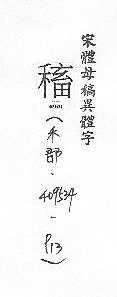 宋體母稿異體字
稸
(禾部.409534-P13)